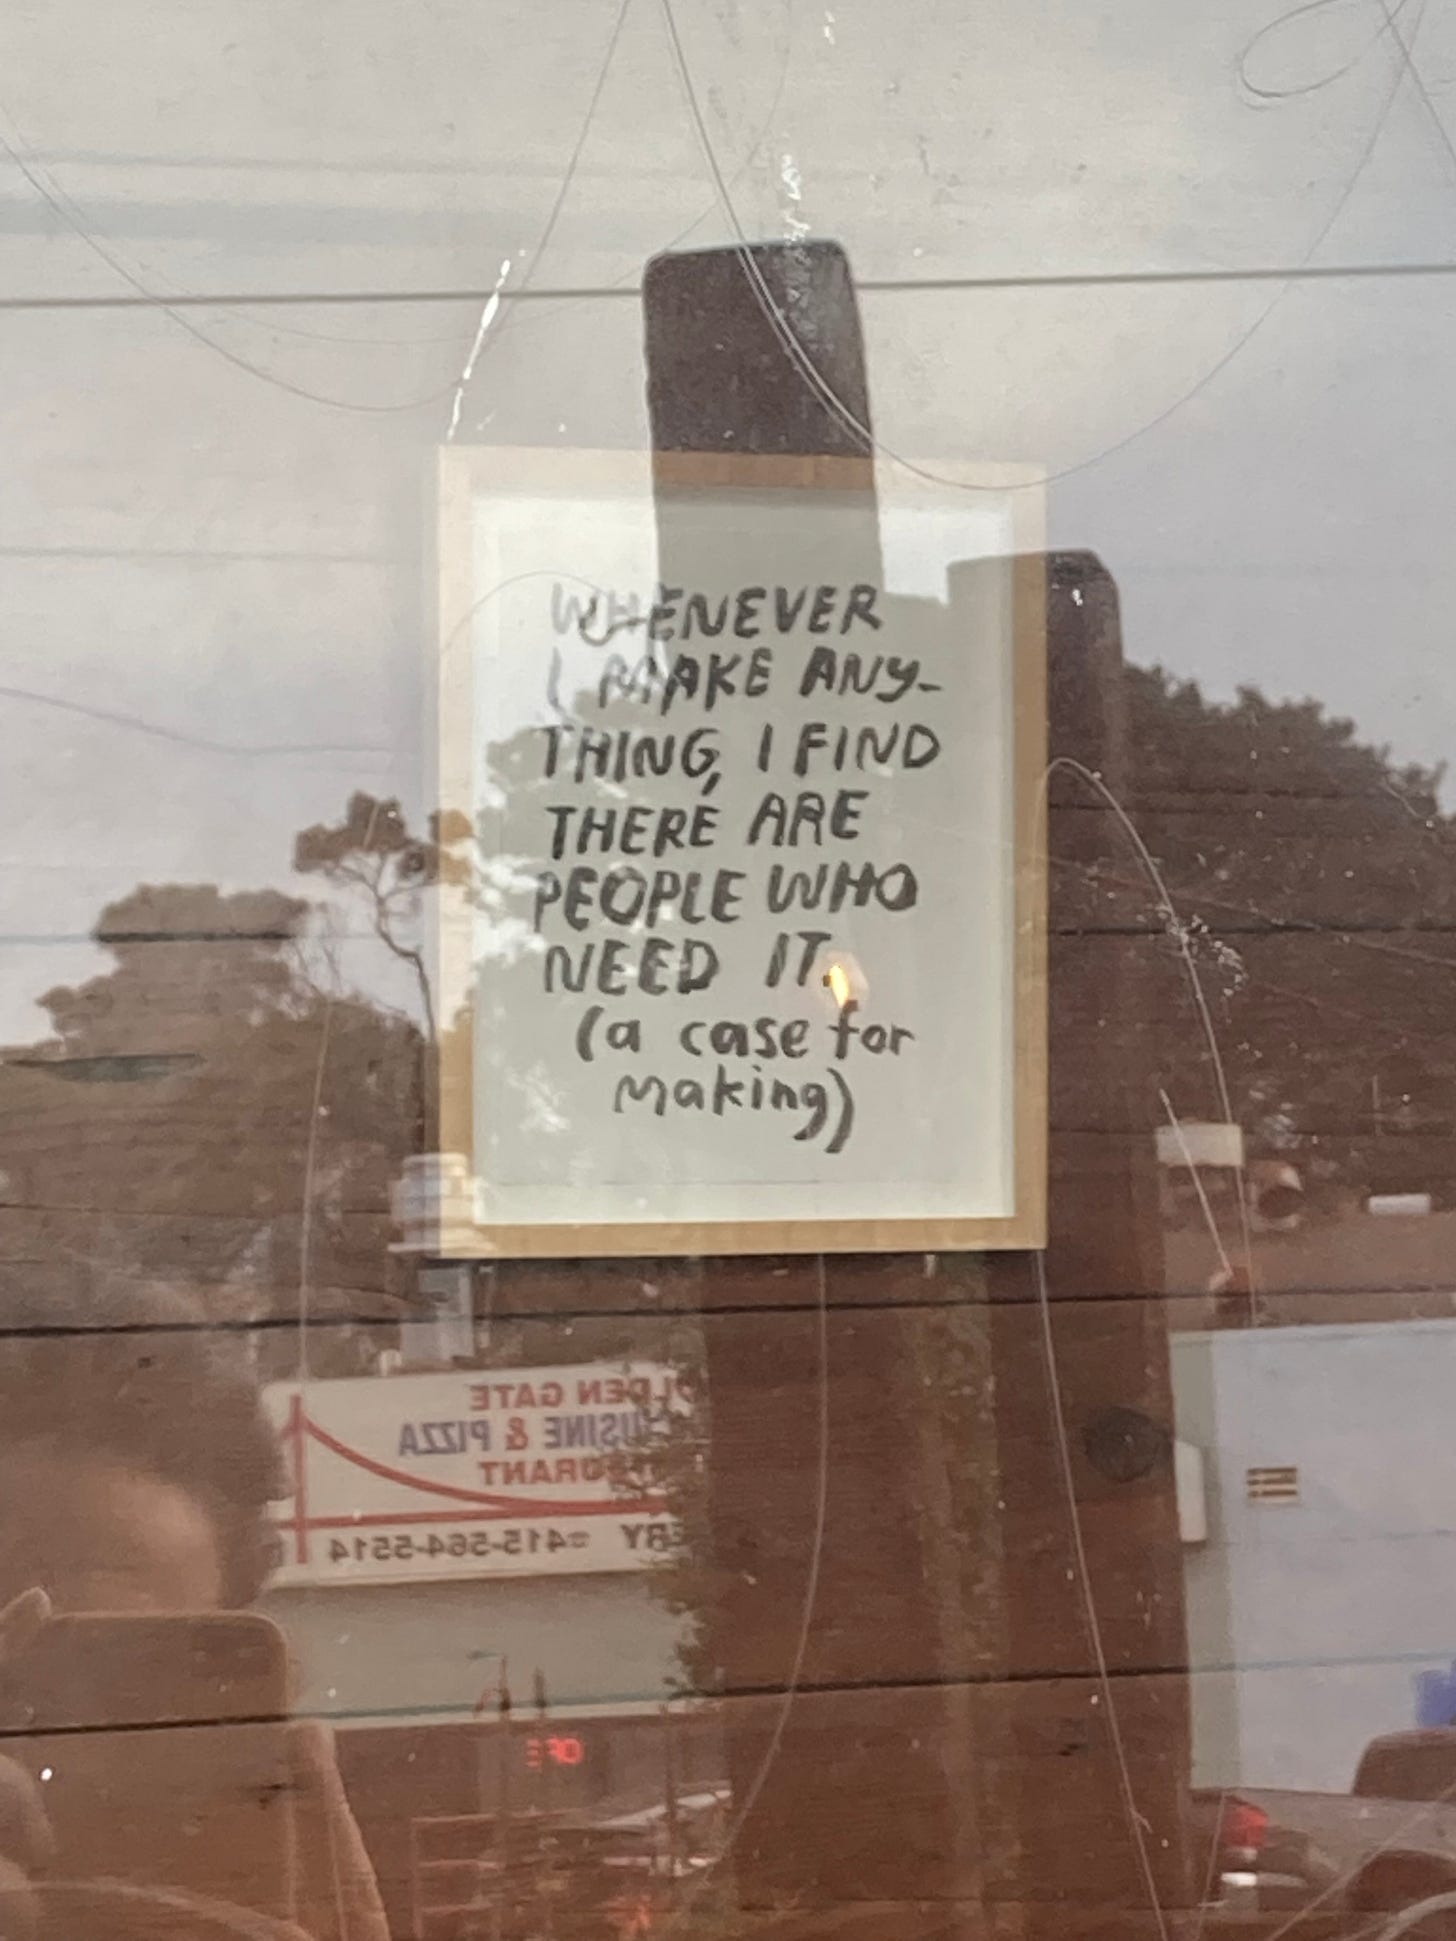 WHENEVER
I MAKE ANY-
THING, I FIND
THERE ARE
PEOPLE WHO
NEED IT.
(a case for
making)
GATE
& PIZZA
415-564-5514